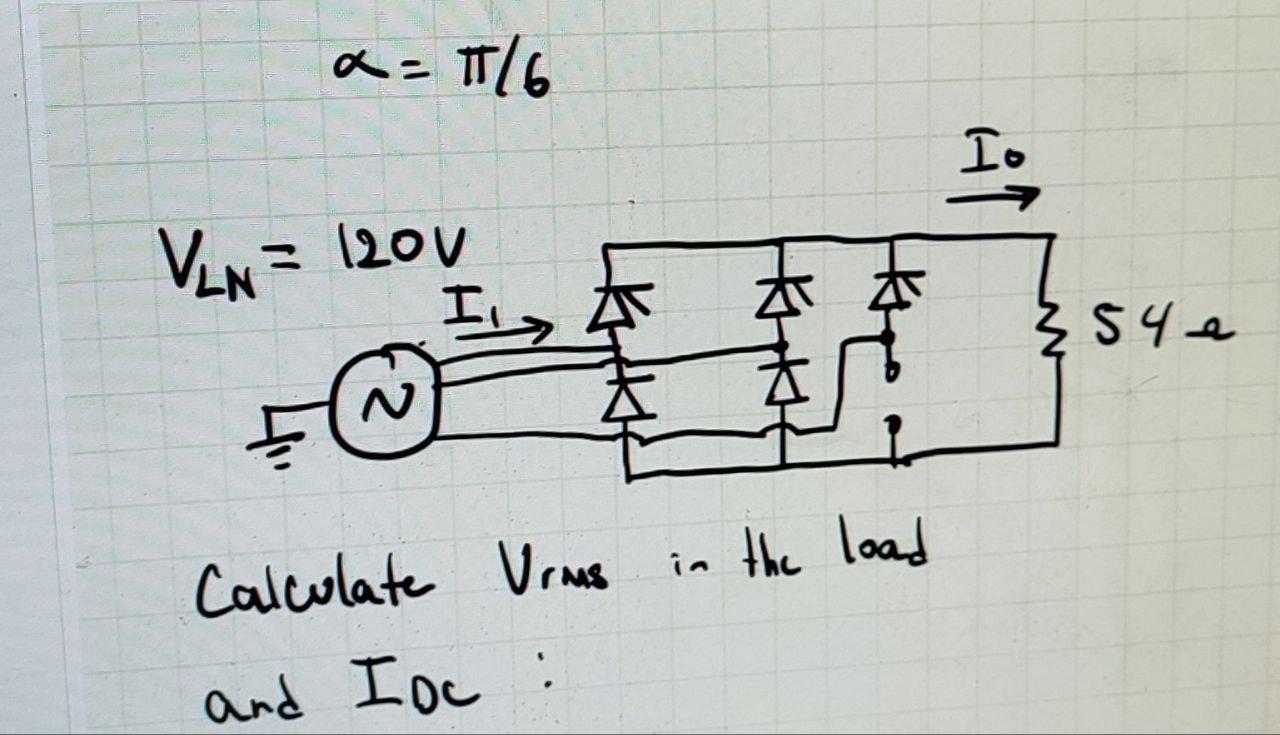 α = π/6
I₀
V_LN = 120V
I₁
54 Ω
Calculate Vrms in the load
and I_DC :